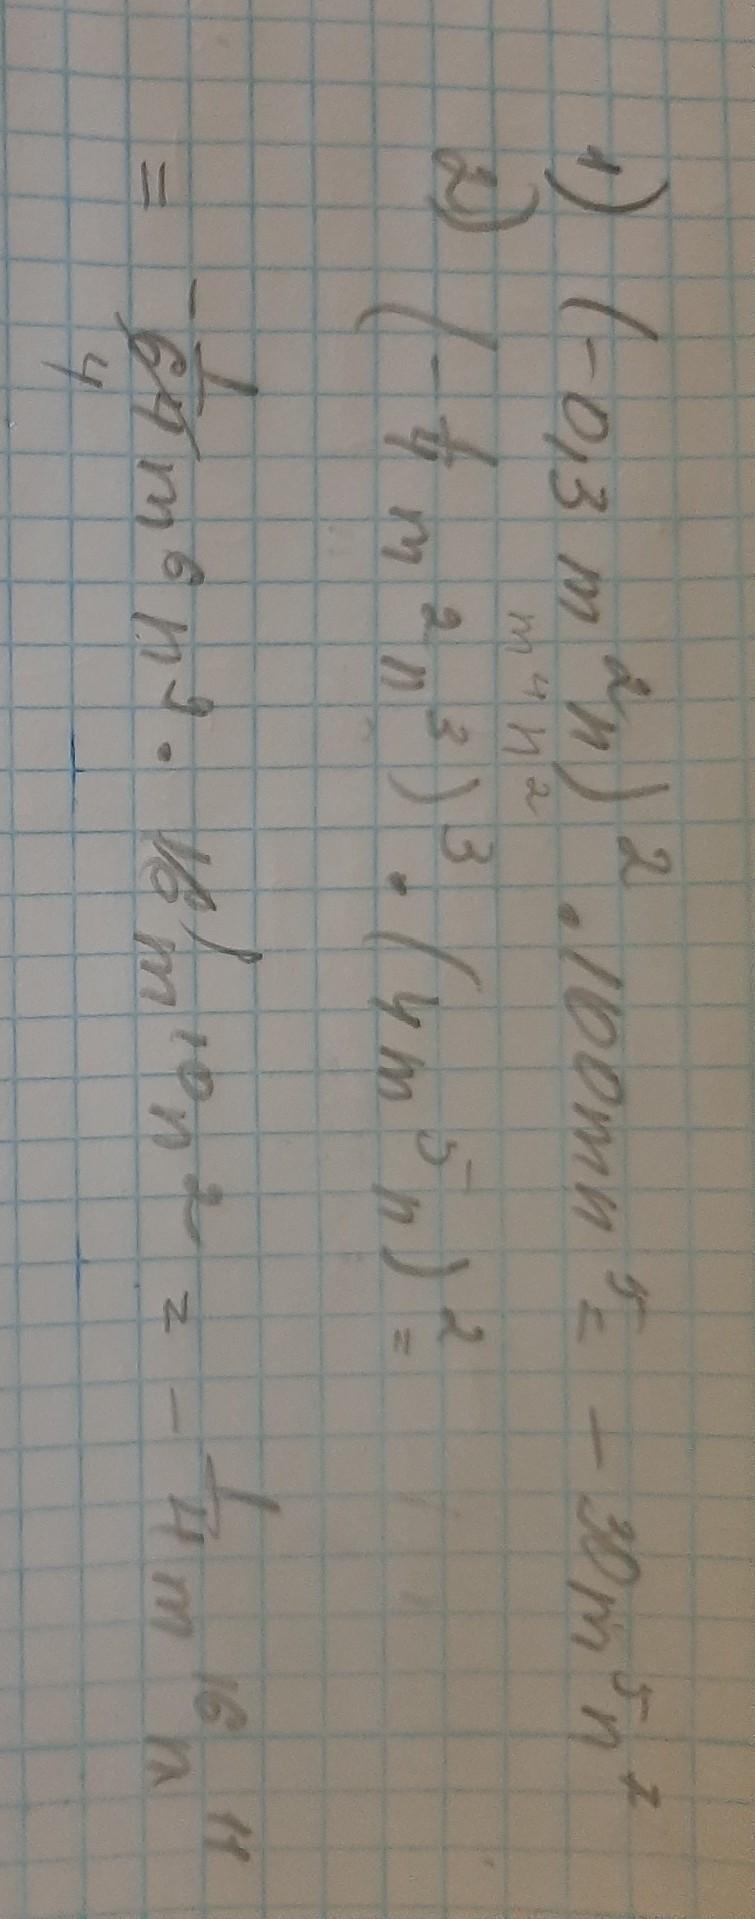 1) (-0,3 m²n)² · 100mn⁵ = -30m⁵n⁷
m⁴n²
2) (-1/4 m²n³)³ · (4m⁵n)² =
= -1/64 m⁶n⁹ · 16 m¹⁰n² = -1/4 m¹⁶n¹¹
4 1